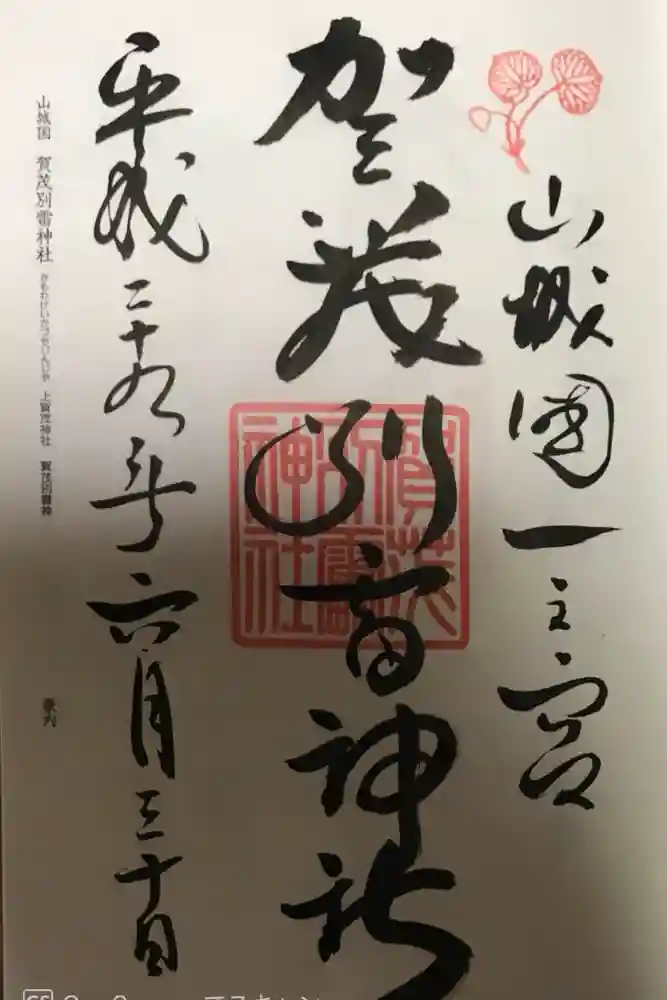 山城國一之宮
賀茂別雷神社
賀茂別雷神社
平成二十九年六月三十日
山城国 賀茂別雷神社 かもわけいかづちじんじゃ 上賀茂神社 賀茂別雷神